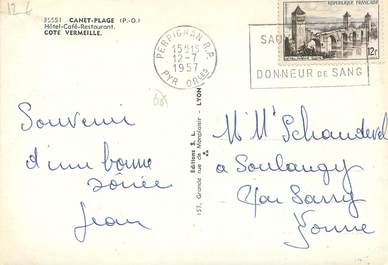 12 €
85551 CANET-PLAGE (P.-O.)
Hôtel-Café-Restaurant.
COTE VERMEILLE.
PERPIGNAN R.P.
15H15
12-7
1957
PYR ORLES
REPUBLIQUE FRANÇAISE
12F
DONNEUR DE SANG
Souvenir
d'une bonne
soirée
Jean
Editions S. L.
157, Grande rue de Monplaisir - LYON
M Mme Schandevel
a Soulangy
par Sarry
Yonne